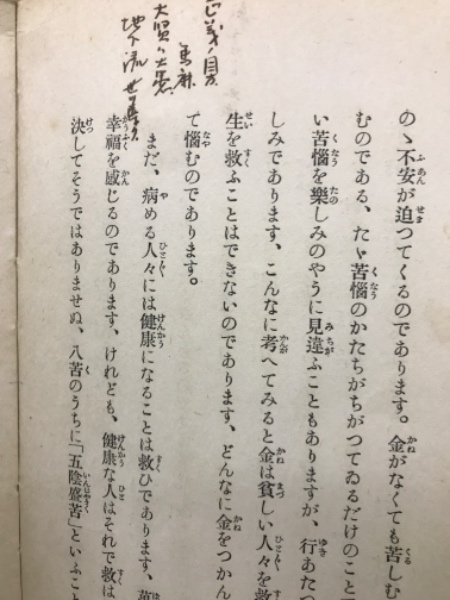 大賢ハ大愚
のゝ不安が迫つてくるのであります。金がなくても苦しむ
むのである、たゞ苦惱のかたちがちがつてゐるだけのこと
い苦惱を樂しみのやうに見違ふこともありますが、行あたつ
しみであります、こんなに考へてみると金は貧しい人々を救
生を救ふことはできないのであります、どんなに金をつかん
て惱むのであります。
まだ、病める人々には健康になることは救ひであります、萬
幸福を感じるのであります、けれども、健康な人はそれで救は
決してそうではありませぬ、八苦のうちに「五陰盛苦」といふこと